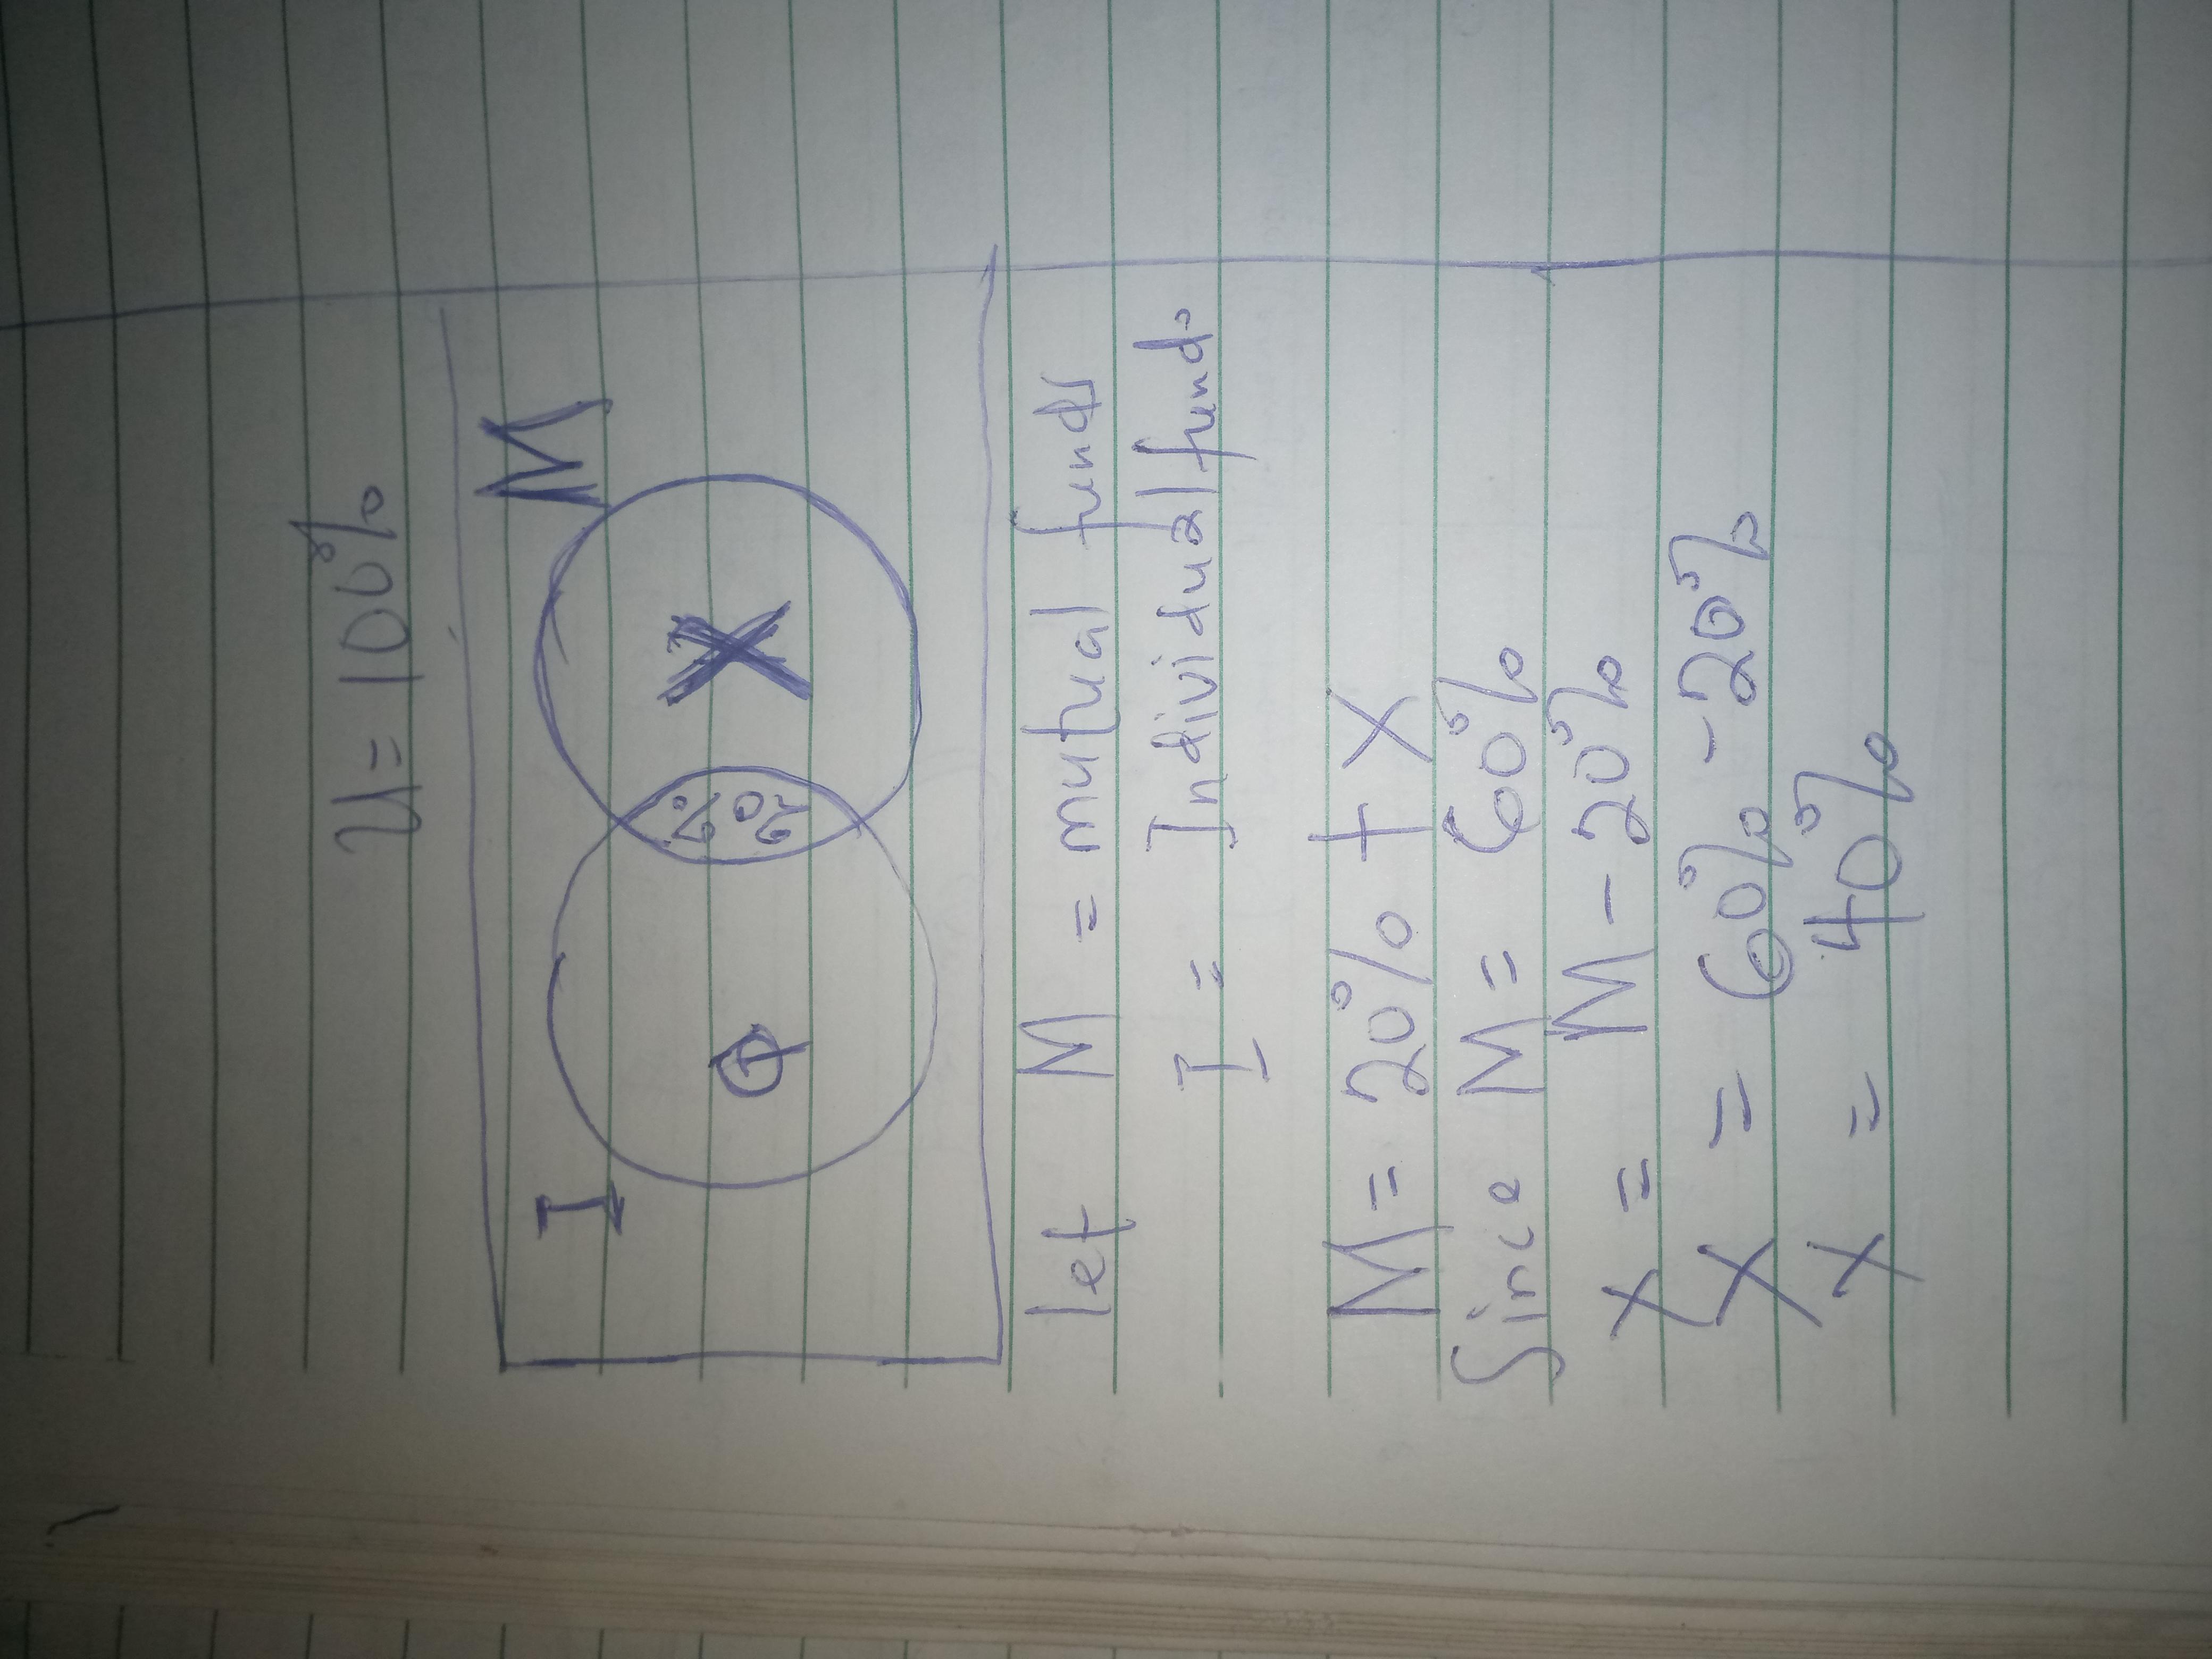 U = 100%
I M
φ 20% X
let M = mutual funds
I = Individual fund.
M = 20% + X
Since M = 60%
X = M - 20%
X = 60% - 20%
X = 40%